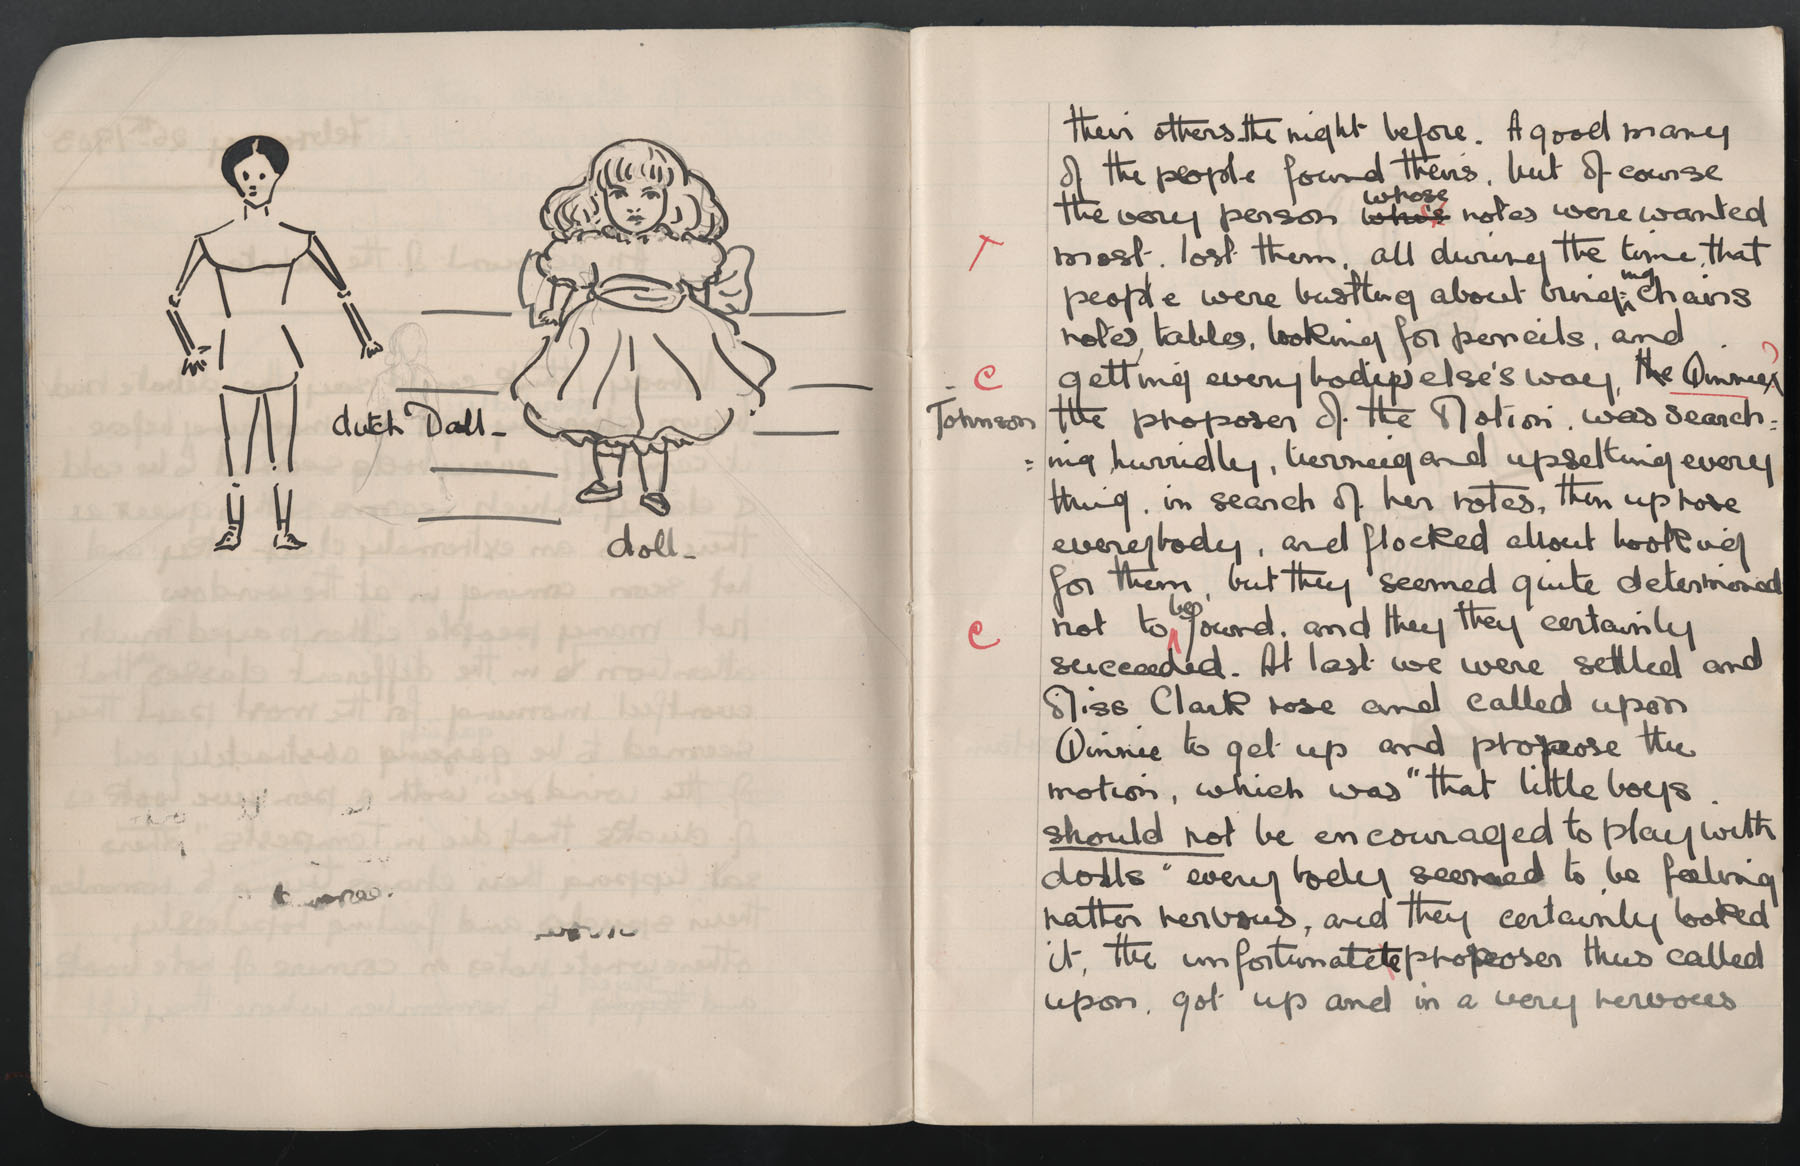 dutch Doll_
doll_
their others the night before. A good many
of the people found theirs, but of course
the very person who's whose notes were wanted
most. lost them, all during the time, that
people were bustling about bring=ing chairs
notes, tables, looking for pencils, and
C getting everybody else's way, the Winnie
Johnson the proposer of the Motion. was search=
=ing hurridly, turning and upsetting every
thing. in search of her notes, then up rose
everybody, and flocked about looking
for them, but they seemed quite determined
C not to be found. and they they certainly
succeeded. At last we were settled and
Miss Clark rose and called upon
Winnie to get up and propose the
motion, which was "that little boys
should not be encouraged to play with
dolls" every body seemed to be feeling
rather nervous, and they certainly looked
it, the unfortunatete proposer thus called
upon. got up and in a very nervous